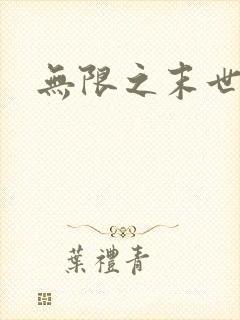 無限之末世
葉禮青